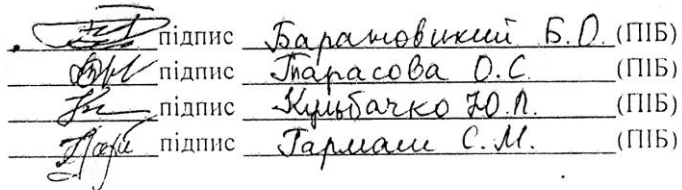 підпис Барановський Б.О. (ПІБ)
підпис Тарасова О.С. (ПІБ)
підпис Кульбачко Ю.Л. (ПІБ)
підпис Гармаш С.М. (ПІБ)